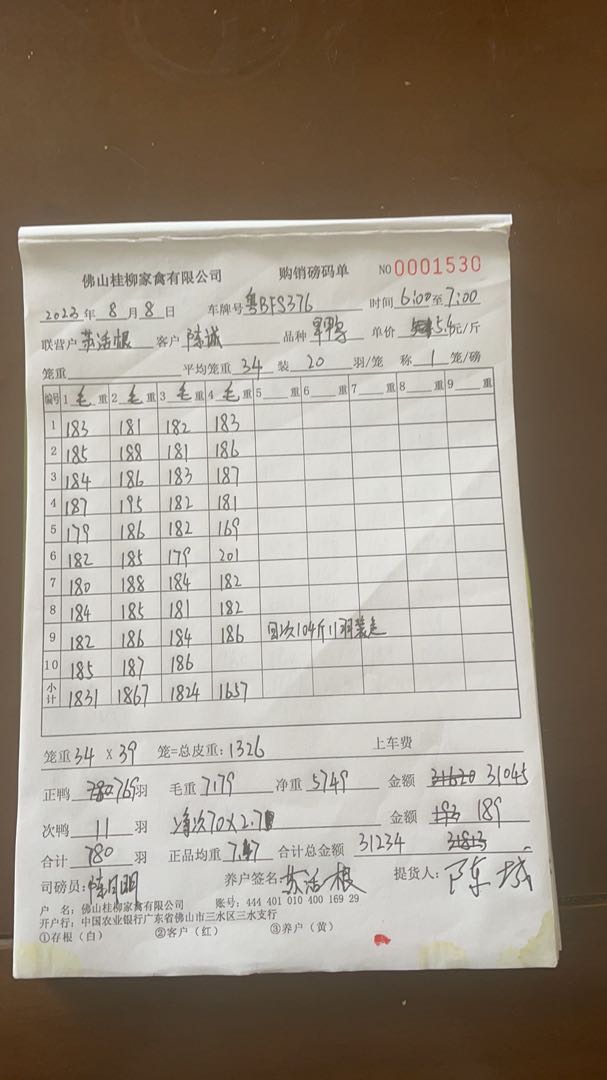 佛山桂柳家禽有限公司 购销磅码单 NO 0001530
2023 年 8 月 8 日 车牌号 粤BFS376 时间 6:00 至 7:00
联营户 苏活根 客户 陈诚 品种 旱鸭 单价 5.4 元/斤
笼重 平均笼重 34 装 20 羽/笼 称 1 笼/磅
编号 1 毛 重 2 毛 重 3 毛 重 4 毛 重 5 重 6 重 7 重 8 重 9 重
1 183 181 182 183
2 185 188 181 186
3 184 186 183 187
4 187 195 182 181
5 179 186 182 169
6 182 185 179 201
7 180 188 184 182
8 184 185 181 182
9 182 186 184 186 回次104斤11羽装
10 185 187 186
小计 1831 1867 1824 1657
笼重 34 X 39 笼=总皮重: 1326 上车费
正鸭 769 羽 毛重 7179 净重 5749 金额 31620 31045
次鸭 11 羽 净次70×2.7 金额 193 189
合计 780 羽 正品均重 7.47 合计总金额 31234 31813
司磅员: 陈日明 养户签名: 苏活根 提货人: 陈城
户 名: 佛山桂柳家禽有限公司 账号: 444 401 010 400 169 29
开户行: 中国农业银行广东省佛山市三水区三水支行
①存根（白） ②客户（红） ③养户（黄）